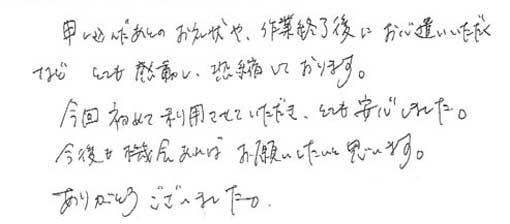 申し込んだあとのお礼状や、作業終了後にお心遣いいただく
など とても感動し、恐縮しております。
今回初めて利用させていただき、とても安心しました。
今後も機会あればお願いしたいと思います。
ありがとうございました。